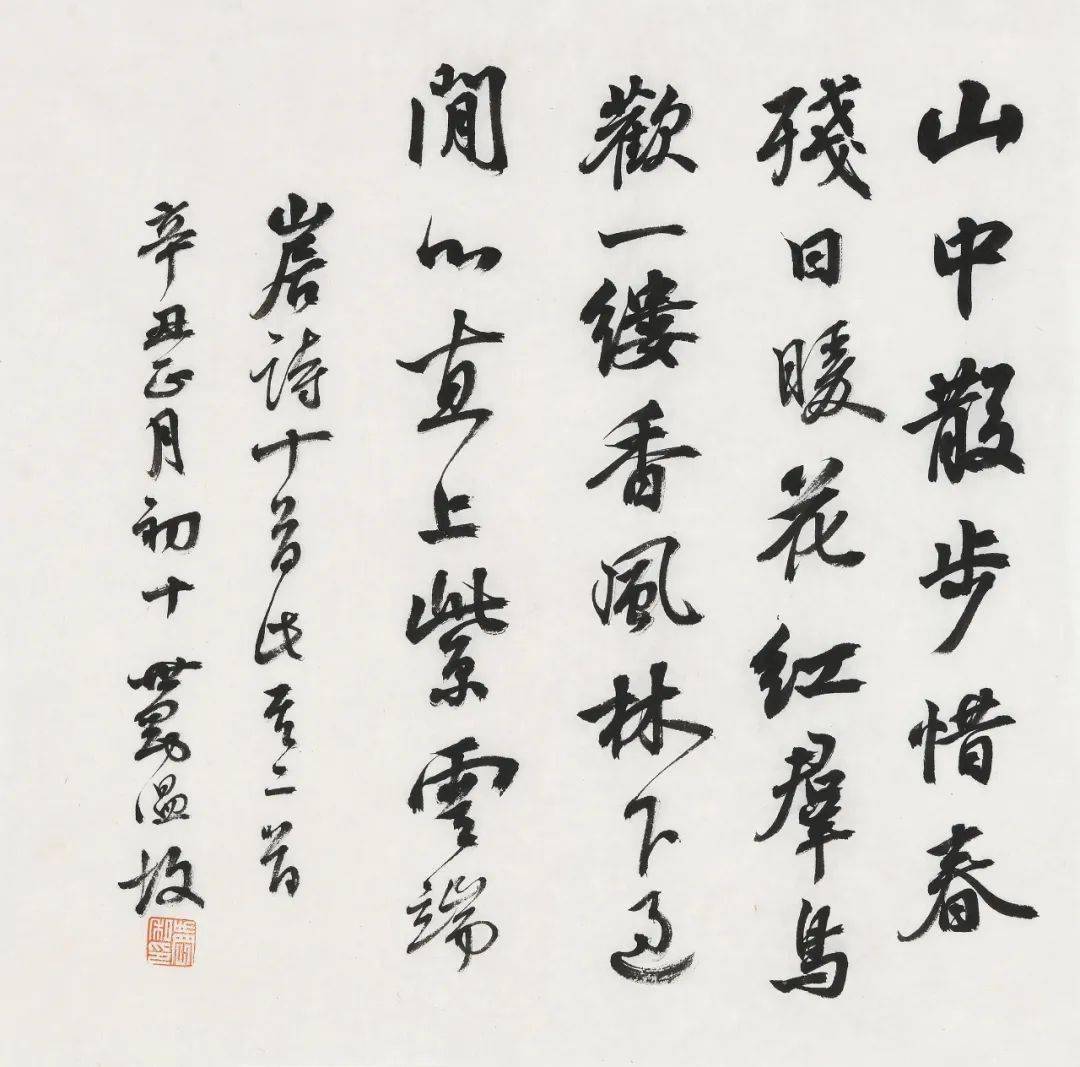 山中散步惜春
殘日暖花紅羣鳥
歡一縷香風林下過
閒心直上紫雲端
山居詩十首此其二首
辛丑正月初十 温故